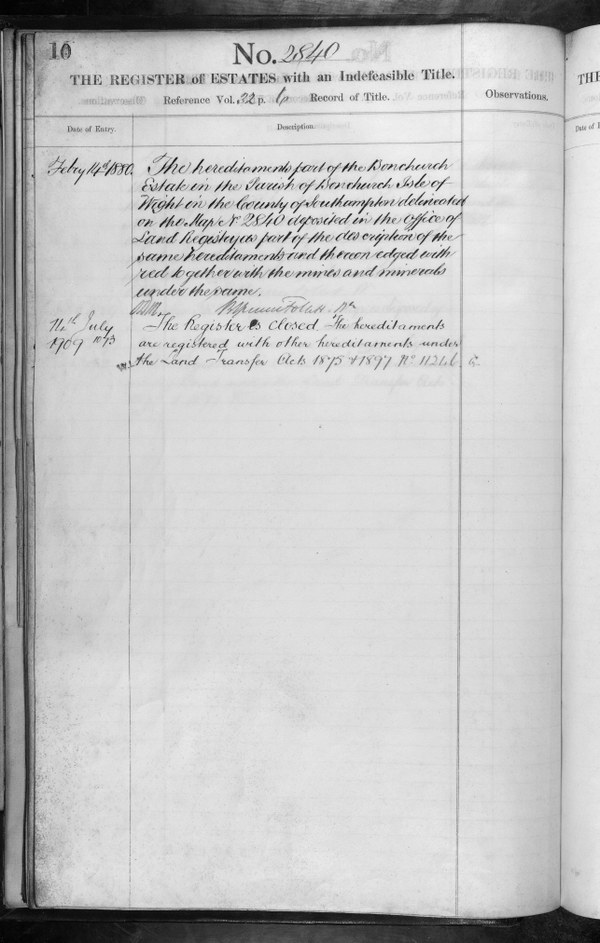 10
No. 2840
THE REGISTER of ESTATES with an Indefeasible Title.
Reference Vol. 32 p. 6 Record of Title.
Observations.
Date of Entry.
Description.
Feby 14th 1880.
The hereditaments part of the Bonchurch
Estate in the Parish of Bonchurch Isle of
Wight in the County of Southampton delineated
on the Map No 2840 deposited in the Office of
Land Registry as part of the description of the
same hereditaments and thereon edged with
red together with the mines and minerals
under the same.
Follett
July
1909
The Register is closed. The hereditaments
are registered with other hereditaments under
the Land Transfer Acts 1875 & 1897 No
THE
Date of E